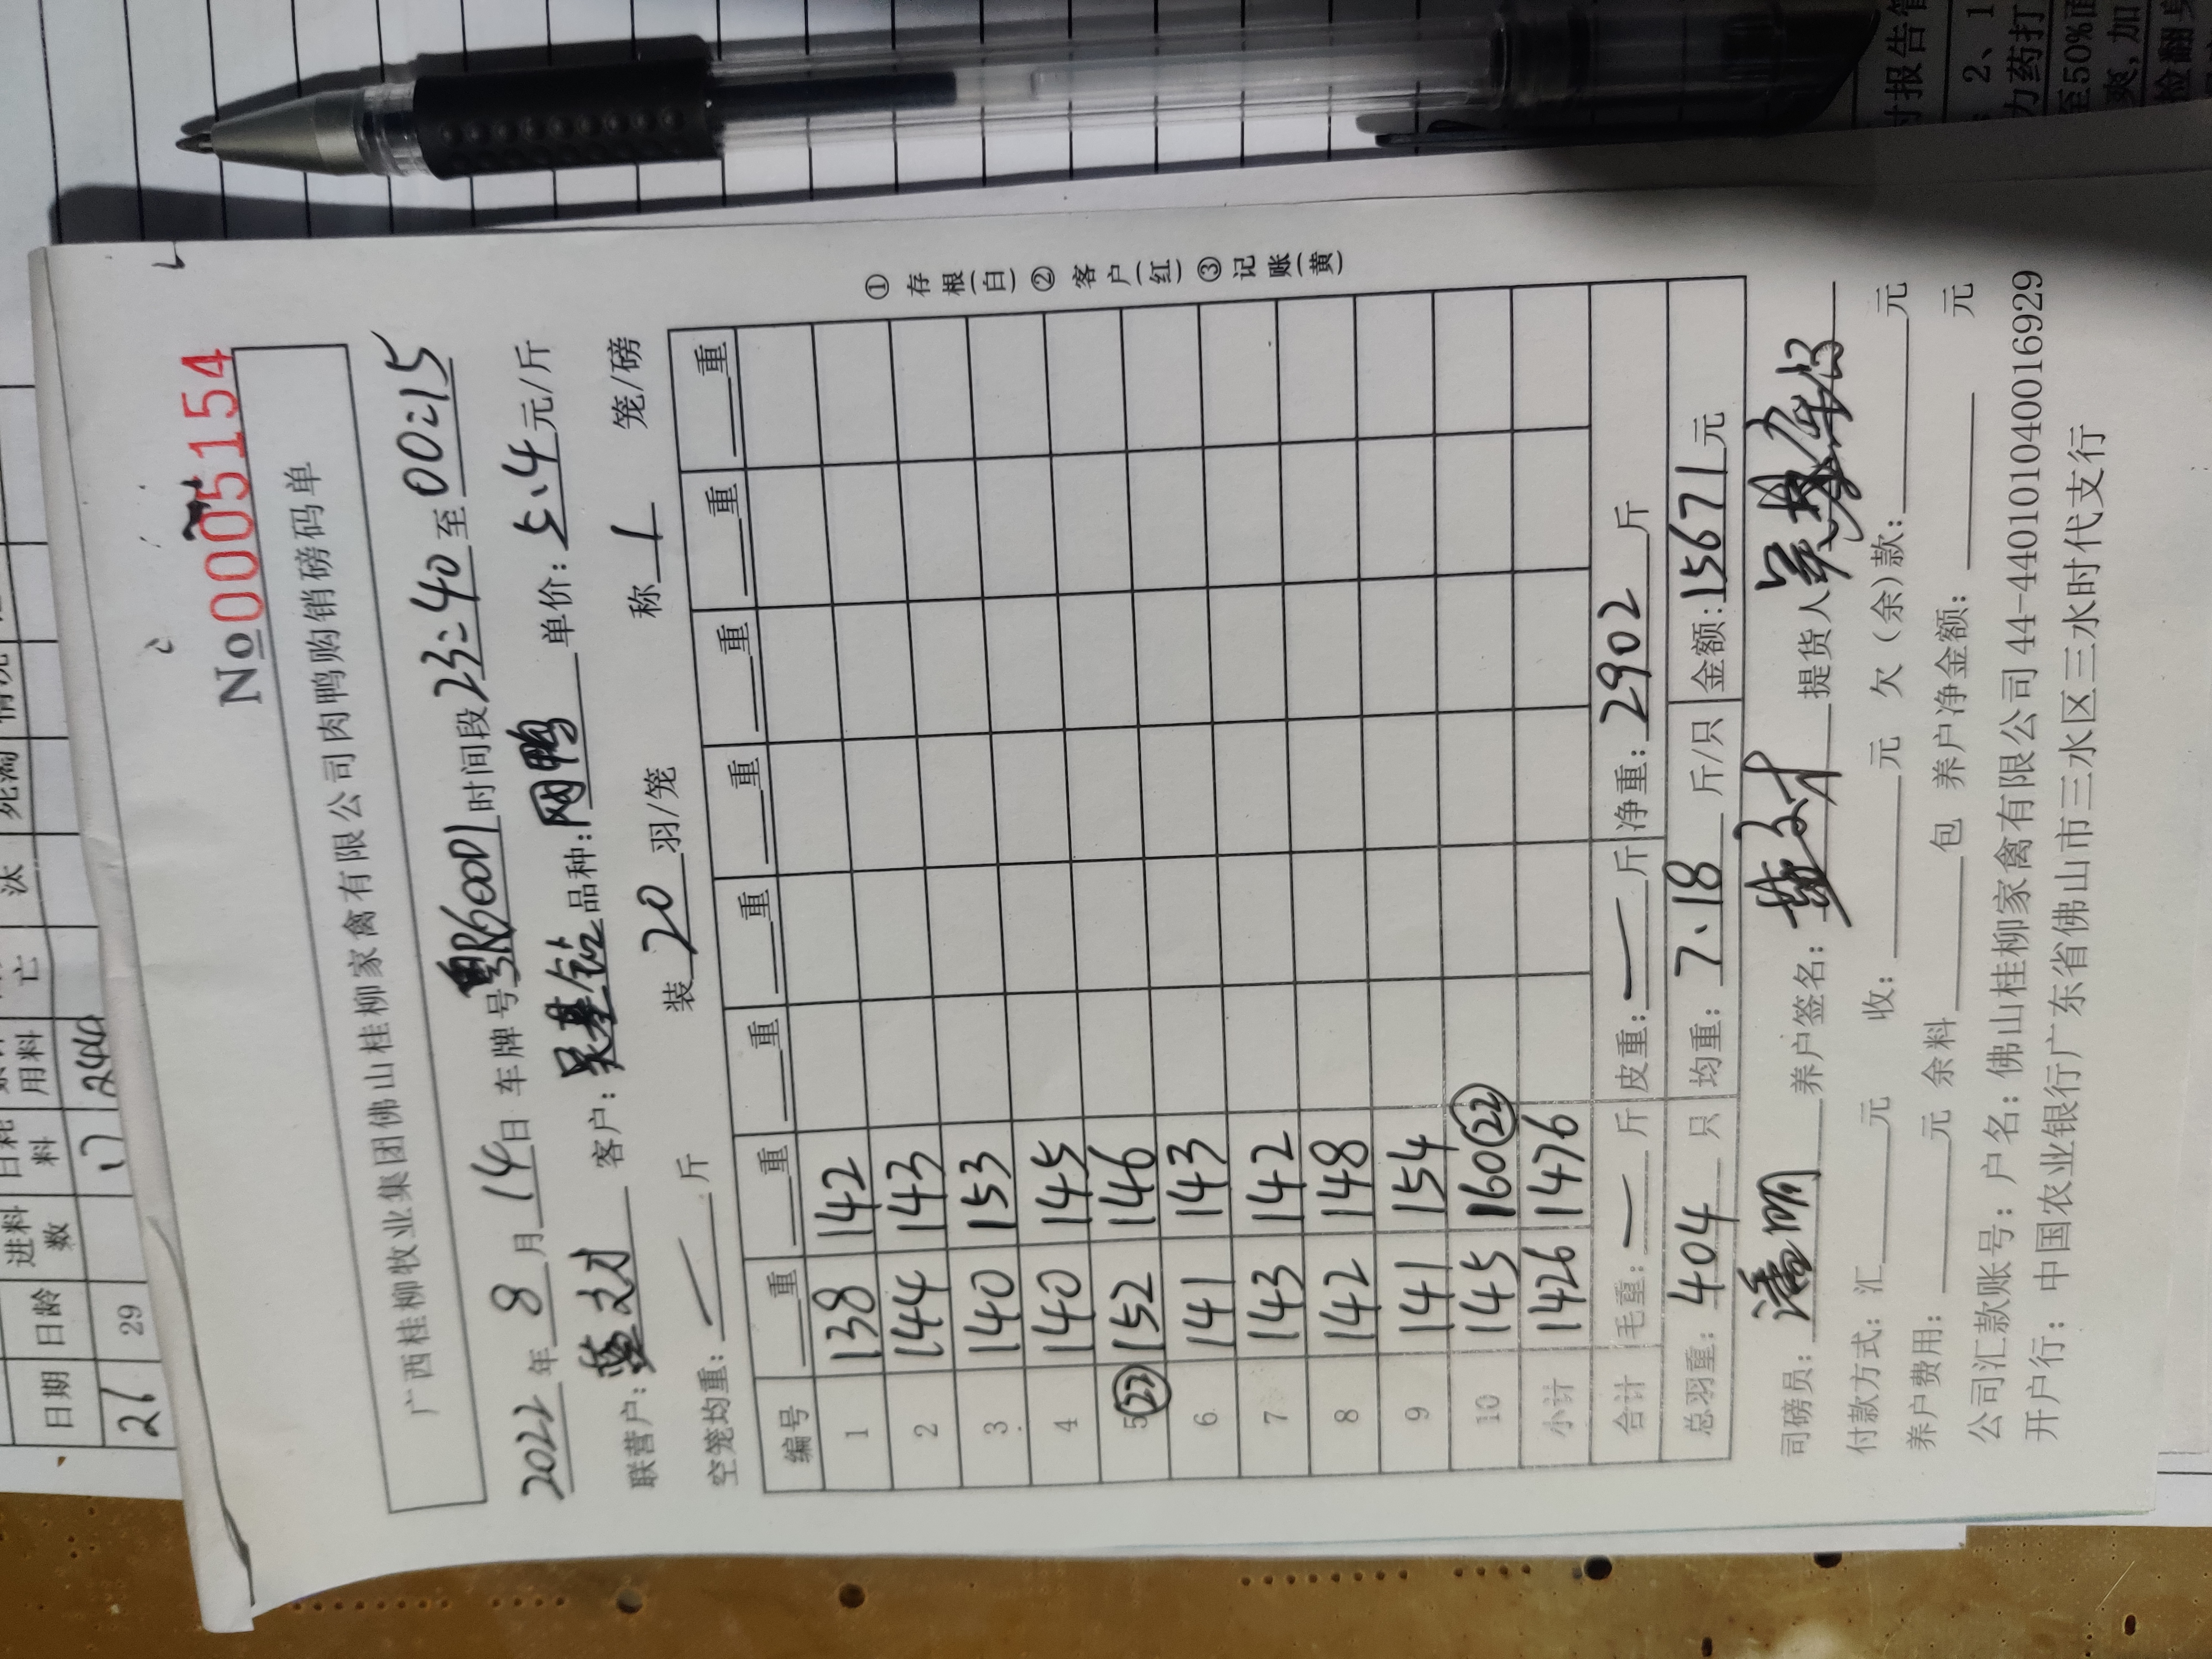 No 0005154
广西桂柳牧业集团佛山桂柳家禽有限公司肉鸭购销磅码单
2022年 8月 14日 车牌号 粤R600D1 时间段 23:40 至 00:15
联营户: 客户: 吴基 品种: 网鸭 单价: 5.4 元/斤
空笼均重: — 斤 装 20 羽/笼 称 1 笼/磅
编号 重 重 重 重 重 重 重 重
1 138 142
2 144 143
3 140 153
4 140 145
5 (22) 152 146
6 141 143
7 143 142
8 142 148
9 141 154
10 145 160 (22)
小计 1426 1476
合计 毛重: — 斤 皮重: — 斤 净重: 2902 斤
总羽重: 404 只 均重: 7.18 斤/只 金额: 15671 元
司磅员: 养户签名: 提货人
付款方式: 汇 元 收: 元 欠(余)款: 元
养户费用: 元 余料 包 养户净金额: 元
公司汇款账号: 户名: 佛山桂柳家禽有限公司 44-440101040016929
开户行: 中国农业银行广东省佛山市三水区三水时代支行
① 存根(白) ② 客户(红) ③ 记账(黄)
日期 日龄 进料数 日耗料 用料 亡 汰 死淘 情况
26 29 17 244
时报告管
2、1
力药打
至50%面
爽,加
检翻身